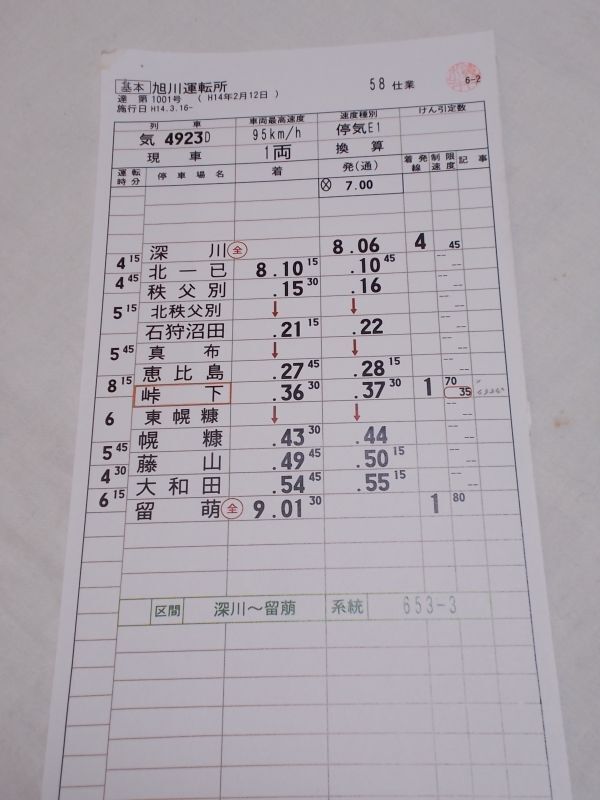 基本 旭川運転所 58 仕業 6-2
達 第1001号 ( H14年2月12日 )
施行日 H14.3.16-
列車 車両最高速度 速度種別 けん引定数
気 4923D 95km/h 停気E1
現車 1両 換算
運転時分 停車場名 着 発(通) 着発線 制限速度 記事
7.00
深川 全 8.06 4 45
4 15
北一已 8.10 15 .10 45
4 45
秩父別 .15 30 .16
北秩父別 ↓ ↓
5 15
石狩沼田 .21 15 .22
真布 ↓ ↓
5 45
恵比島 .27 45 .28 15
8 15
峠下 .36 30 .37 30 1 70 35
東幌糠 ↓ ↓
6
幌糠 .43 30 .44
5 45
藤山 .49 45 .50 15
4 30
大和田 .54 45 .55 15
6 15
留萌 全 9.01 30 1 80
区間 深川～留萠 系統 653-3